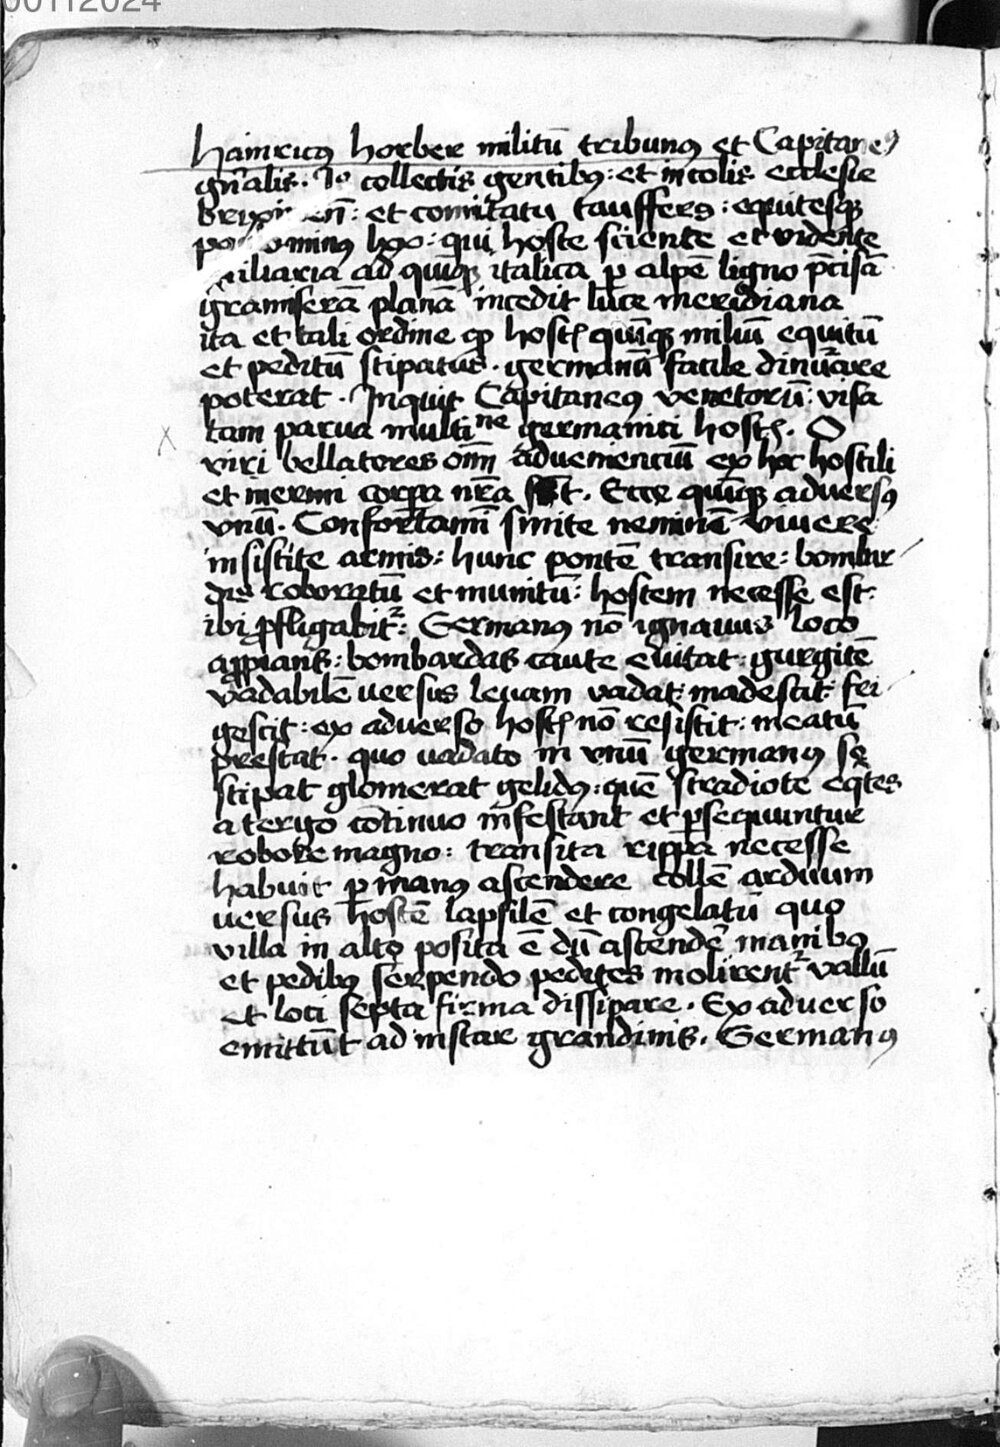 00112024
Hainricꝰ horber militū tribunꝰ et Capitaneꝰ
gn̄alis. Is collectis gentibꝰ: et incolis ecclesie
et comitatu tauffers: equitesqꝫ
hoc: qui hoste sciente et vidente
miliaria ad quīqꝫ italica ꝑ alpē ligno p̄cisā
graminiferā planā incedit luce meridiana
ita et tali ordine qꝫ hostꝭ quīqꝫ miliū equitū
et peditū stipatus. germanū facile dinūare
poterat. Inquit Capitaneꝰ venetorū: visa
tam parua multiⁿᵉ germanici hostꝭ. O
viri bellatores om̄ aduenienciū ex hoc hostili
et inermi corpa nr̄a st. Ecce quīqꝫ aduersꝰ
vnū. Confortamī sinite neminē viuere:
insistite armis: hunc pontē transire: bombar
dis roboratū et munitū: hostem necesse est:
ibi ꝓfligabitᷣ: Germanꝰ nō ignauus loco
aꝓpians: bombardas caute euitat: gurgitē
vadabilē uersus leuam vadat: madescit: fri
gescit: ex aduerso hostꝭ nō resistit: meatū
prestat. quo uadato in vnū germanꝰ se
stipat glomerat gelidꝰ: quē stradiote eq̄tes
a tergo cōtinuo īnfestant et ꝑsequuntur
robore magno: transita rippa necesse
habuit ꝑ manꝰ ascendere collē arduum
uersus hostē lapsilē et congelatū quo
villa in alto posita ē dū ascendē manibꝰ
et pedibꝰ serpendo pedites molirentᷣ vallū
et loci septa firma dissipare. Ex aduerso
emittūt ad instar grandinis. Germanꝰ